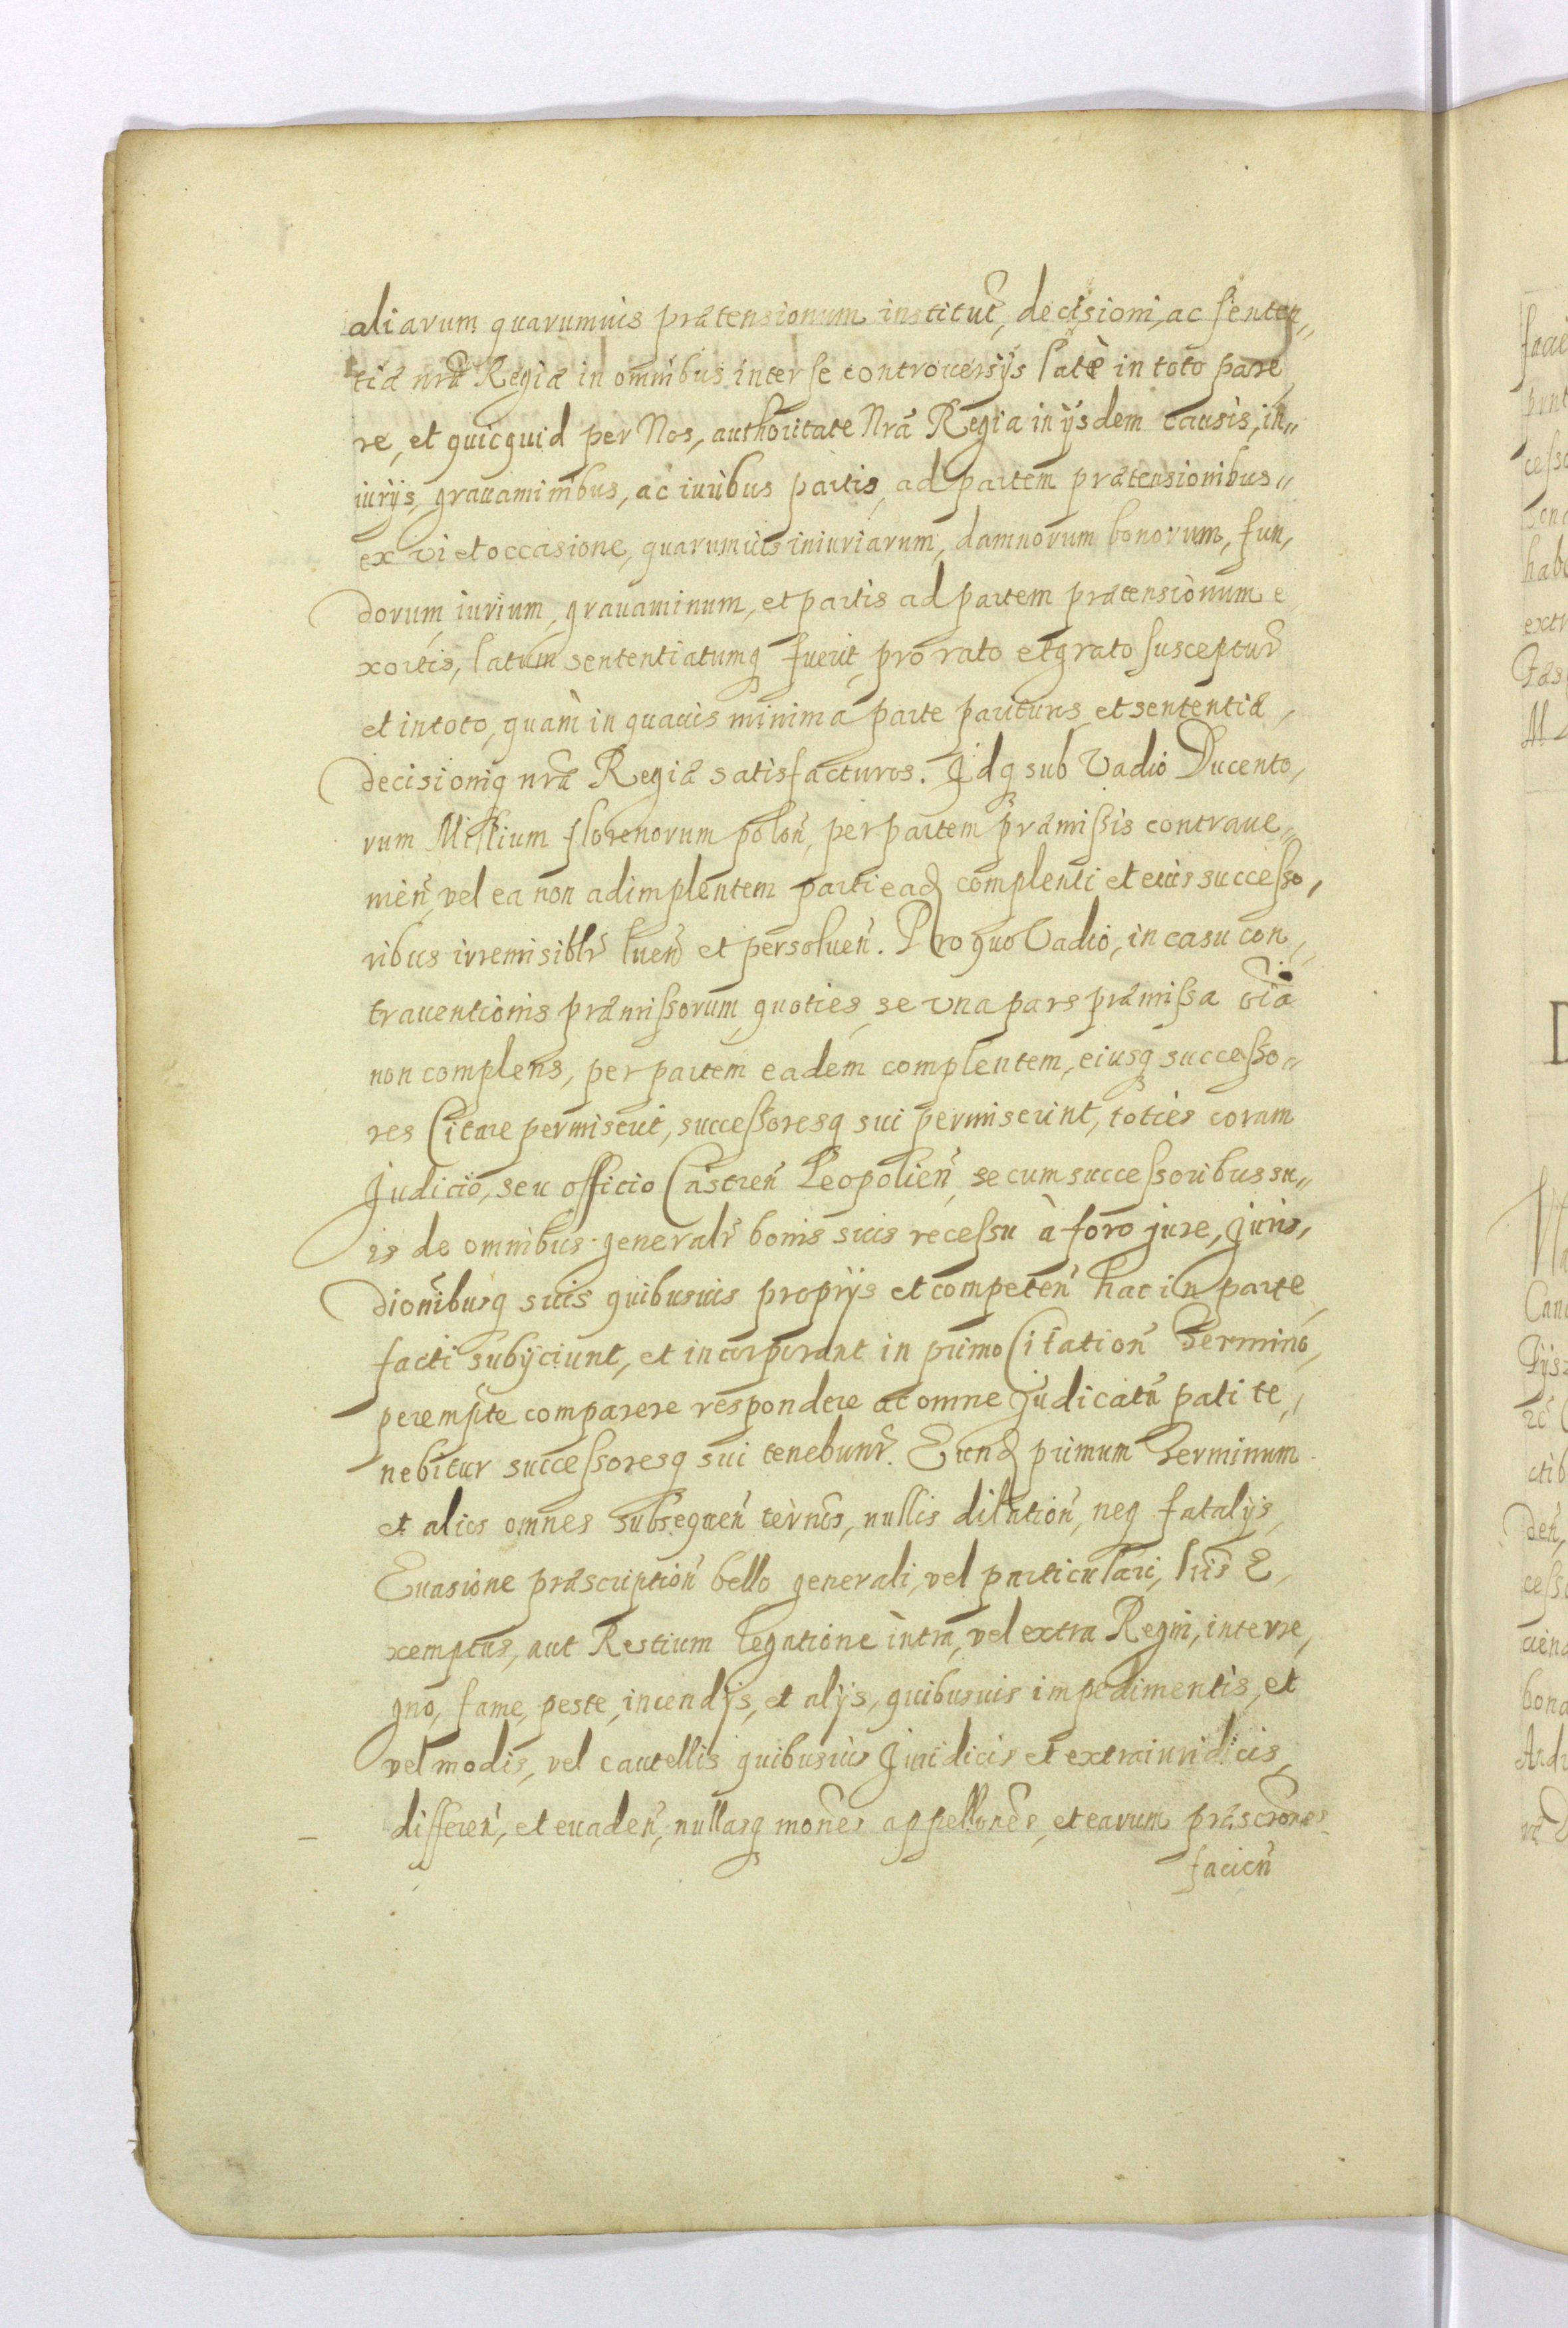 aliarum quarumuis prætensionum institut̃, decisioni, ac senten„
tiæ nr̃æ Regiæ in omnibus inter se controuersijs latè in toto pare
re, et quicquid per Nos, authoritate Nrã Regia in ijsdem causis, in„
iurijs, grauaminibus, ac iuribus partis, ad partem prætensionibus„
ex vi et occasione, quarumuis iniuriarum, damnorum bonorum, fun,
dorum, iurium, grauaminum, et partis ad partem prætensionum e
xortis, latum sententiatumq fuerit, pro rato et grato susceptur̃
et in toto, quàm in quauis minima parte parituros et sententiæ,
decisioniq nr̃æ Regiæ satisfacturos. Idq sub Vadio Ducento,
rum Millium florenorum poloñ, per partem præmissis contraue„
nieñ, vel ea non adimplentem parti ead complenti et eius successo,
ribus irremisiblr̃ lueñ et persolueñ. Pro quo Vadio, in casu con„
trauentionis præmissorum, quoties, se vna pars præmissa oĩa
non complens, per partem eadem complentem, eiusq successo„
res Citare permiserit, successoresq sui permiserint, toties coram
Judicio, seu officio Castreñ Leopolieñ, se cum successoribus su„
is de omnibus generalr̃ bonis suis recessu à foro jure, Juris,
dioñibusq suis quibusuis proprijs et competeñ hac in parte
facti subijciunt, et incorporant in primo Citationĩ Termino,
perempt̃e comparere respondere ac omne Judicatũ pati te,,
nebitur successoresq sui tenebunt̃. Eund primum Terminum
et alios omnes subsequeñ terños, nullis dilatioñ, neq fatalijs,
Euasione præscriptioñ bello generali, vel particulari, litis E,
xemptus, aut Restium legatione intra, vel extra Regni, interre,
gno, fame, peste, incendijs, et alijs, quibusuis impedimentis, et
vel modis, vel cautellis quibusuis Juridicis et extraiuridicis,
differeñ, et euadeñ, nullasq moñes appelloñes, et earum præscrõnes
facieñ